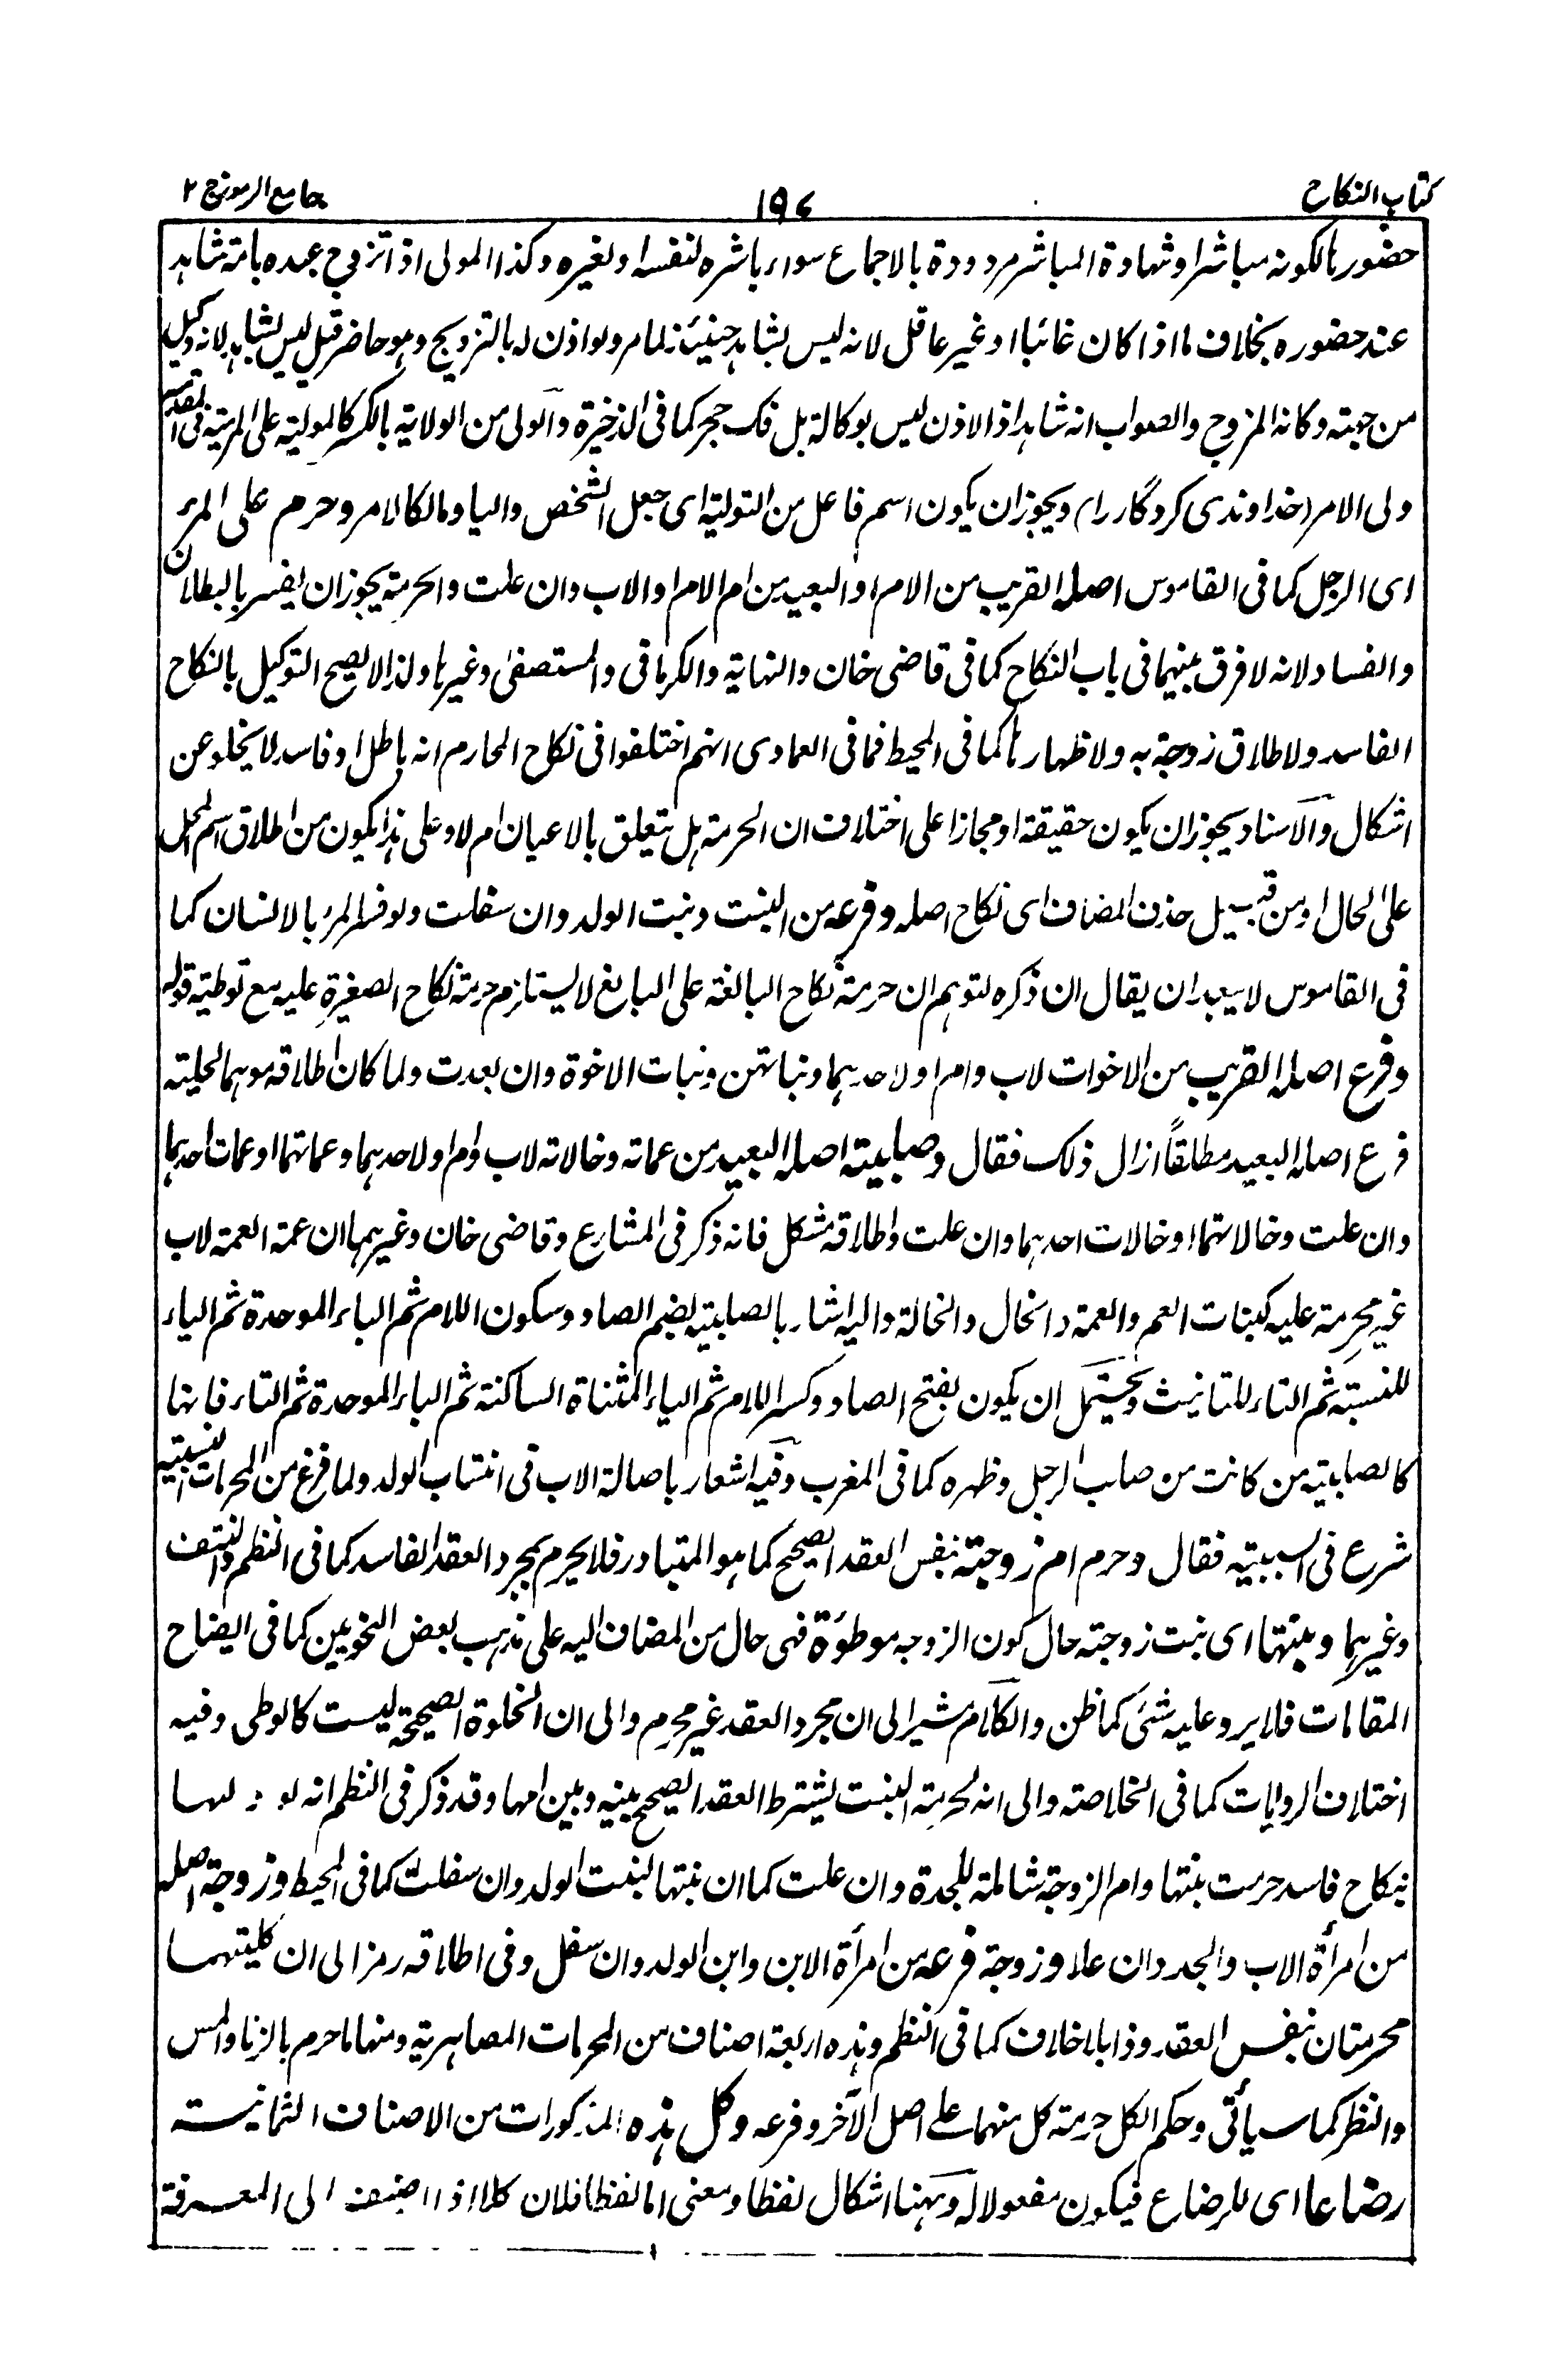 كتاب النكاح
١٩٧
جامع الرموز ج ٢
حضورها لكونه مباشرا وشهادة المباشر مردودة بالاجماع سواء باشره لنفسه او لغيره وكذا المولى اذا تزوج عبده بامته شاهد
عند حضوره بخلاف ما اذا كان غائبا او غير عاقل لانه ليس بشاهد حينئذ لما مر ولو اذن له بالتزويج وهو حاضر قيل ليس بشاهد لانه وكيل
من جهته وكانه المزوج والصواب انه شاهد اذ الاذن ليس بوكالة بل فك حجر كما فى الذخيرة والولى من الولاية بالكسر كالمولية على المرتبة فى
ولى الامر (خداوندى كردگار را) ويجوز ان يكون اسم فاعل من التولية اى جعل الشخص واليا ومالكا لامر وحرم على المرء
اى الرجل كما فى القاموس اصله القريب من الام او البعيد من ام الام والاب وان علت والحرمة يجوز ان يفسر بالبطلان
والفساد لانه لا فرق بينهما فى باب النكاح كما فى قاضى خان والنهاية والكرمانى والمستصفى وغيرها ولذا لا يصح التوكيل بالنكاح
الفاسد ولا طلاق زوجة به ولا ظهارها كما فى المحيط فما فى العمادى انهم اختلفوا فى نكاح المحارم انه باطل او فاسد لا يخلو عن
اشكال والاسناد يجوز ان يكون حقيقة او مجازا على اختلاف ان الحرمة هل يتعلق بالاعيان ام لا وعلى هذا يكون من اطلاق اسم المحل
على الحال او من قبيل حذف المضاف اى نكاح اصله وفرعه من البنت وبنت الولد وان سفلت ولو فسر المرء بالانسان كما
فى القاموس لا يبعد ان يقال ان ذكره لتوهم ان حرمة نكاح البالغة على البالغ لا يستلزم حرمة نكاح الصغيرة عليه مع توطية قوله
وفرع اصله القريب من الاخوات لاب وام او لاحدهما وبناتهن وبنات الاخوة وان بعدت ولما كان اطلاقه موهما لحلية
فرع اصله البعيد مطلقاً ازال ذلك فقال وصلبية اصله البعيد من عماته وخالاته لاب وام او لاحدهما وعماتهما او عمات احدهما
وان علت وخالاتهما او خالات احدهما وان علت واطلاقه مشكل فانه ذكر فى المشارع وقاضى خان وغيرهما ان عمة العمة لاب
غير محرمة عليه كبنات العم والعمة والخال والخالة واليه اشار بالصلبية بضم الصاد وسكون اللام ثم الباء الموحدة ثم الياء
للنسبة ثم التاء للتانيث ويحتمل ان يكون بفتح الصاد وكسر اللام ثم الياء المثناة الساكنة ثم الباء الموحدة ثم التاء فانها
كالصلبية من كانت من صلب الرجل وظهره كما فى المغرب وفيه اشعار باصالة الاب فى انتساب الولد ولما فرغ من المحرمات النسبية
شرع فى السببية فقال وحرم ام زوجته بنفس العقد الصحيح كما هو المتبادر فلا يحرم بمجرد العقد الفاسد كما فى النظم والنتف
وغيرهما وبنتها اى بنت زوجته حال كون الزوجه موطوءة فهى حال من المضاف اليه على مذهب بعض النحويين كما فى ايضاح
المقامات فلا يرد عليه شئ كما ظن والكلام مشير الى ان مجرد العقد غير محرم والى ان الخلوة الصحيحة ليست كالوطى وفيه
اختلاف الروايات كما فى الخلاصة والى انه لحرمة البنت يشترط العقد الصحيح بينه وبين امها وقد ذكر فى النظم انه لو لمسها
بنكاح فاسد حرمت بنتها وام الزوجة شاملة للجدة وان علت كما ان بنتها لبنت الولد وان سفلت كما فى المحيط وزوجة اصله
من امرأة الاب والجد وان علا وزوجة فرعه من امرأة الابن وابن الولد وان سفل وفى اطلاقه رمز الى ان كليتهما
محرمتان بنفس العقد وذا بلا خلاف كما فى النظم وهذه اربعة اصناف من المحرمات المصاهرية ومنها ما حرم بالزنا والمس
والنظر كما سيأتى وحكم الكل حرمة كل منهما على اصل الآخر وفرعه وكل هذه المذكورات من الاصناف الثمانية
رضاعا اى للرضاع فيكون مفعولا له وههنا اشكال لفظا ومعنى اما لفظا فلان كلا اذا اضيف الى المعرفة